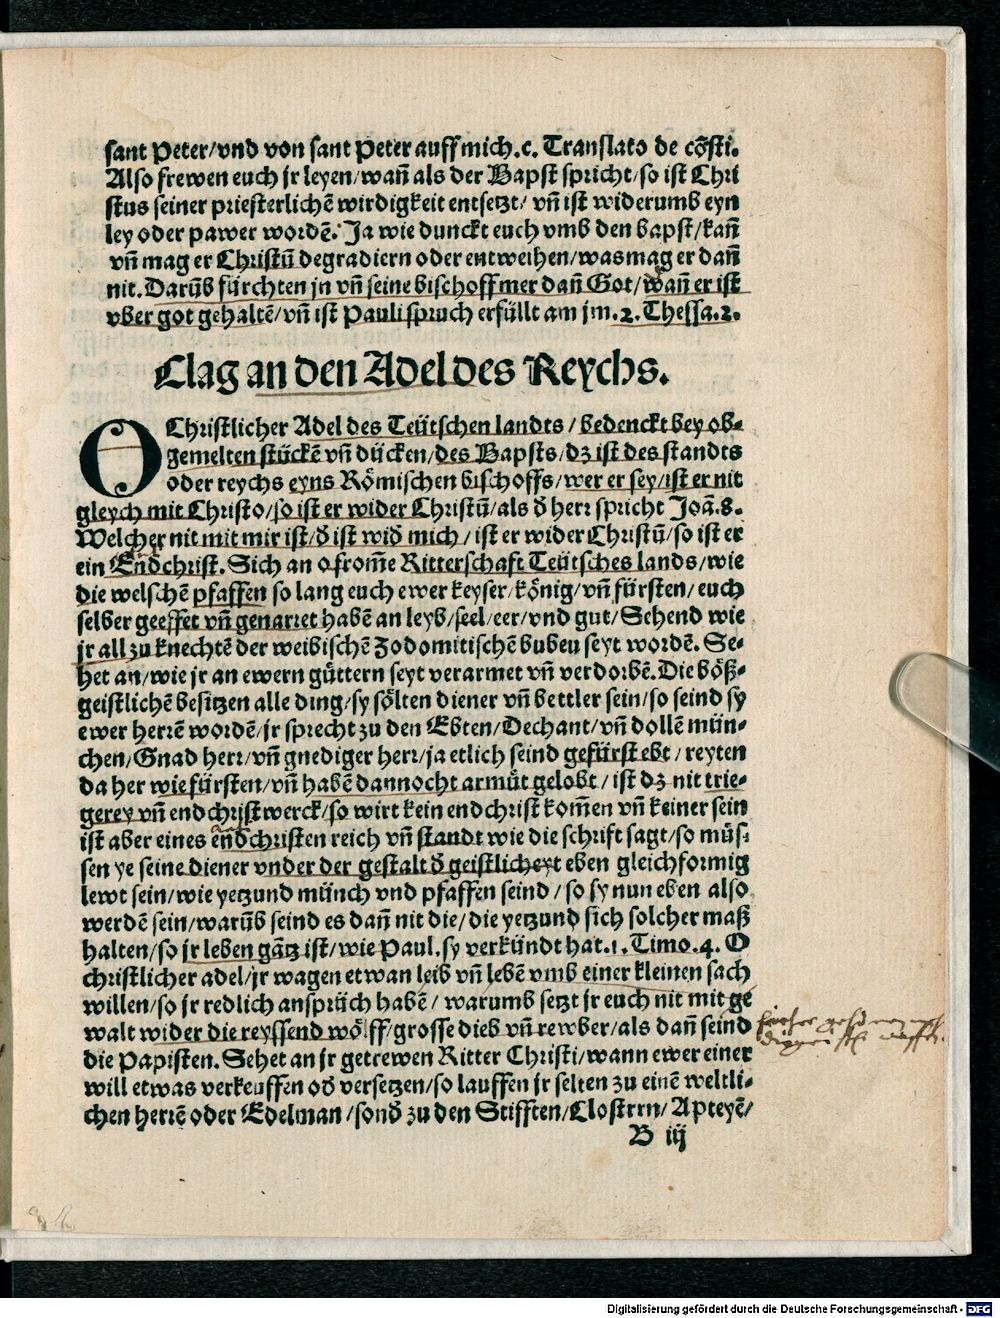 sant Peter/vnd von sant Peter auff mich.ꝛc. Translato de cõsti.
Also frewen euch jr leyen/wañ als der Bapst spricht/so ist Chri
stus seiner priesterlichẽ wirdigkeit entsetzt/ vñ ist widerumb eyn
ley oder pawer wordẽ. Ja wie dunckt euch vmb den bapst/kañ
vñ mag er Christũ degradiern oder entweihen/was mag er dañ
nit. Darũb fürchten jn vñ seine bischoff mer dañ Got/wañ er ist
vber got gehaltẽ/vñ ist Pauli spruch erfüllt am jm.2. Thessa.2.
Clag an den Adel des Reychs.
O Christlicher Adel des Teütschen landts/ bedenckt bey ob-
gemelten stückẽ vñ dücken/des Bapsts/dz ist des standts
oder reychs eyns Römischen bischoffs/wer er sey/ist er nit
gleych mit Christo/so ist er wider Christũ/als ď herr spricht Joã.8.
Welcher nit mit mir ist/ď ist wiď mich/ ist er wider Christũ/so ist er
ein Endchrist. Sich an o from̃e Ritterschaft Teütsches lands/wie
die welschẽ pfaffen so lang euch ewer keyser/könig/vñ fürsten/euch
selber geeffet vñ genarret habẽ an leyb/seel/eer/vnd gut/Sehend wie
jr all zu knechtẽ der weibischẽ Zodomitischẽ bubeu seyt wordẽ. Se-
het an/wie jr an ewern güttern seyt verarmet vñ verdorbẽ. Die böß-
geistlichẽ besitzen alle ding/sy sölten diener vñ bettler sein/so seind sy
ewer herrẽ wordẽ/jr sprecht zu den Ebten/Dechant/vñ dollẽ mün-
chen/Gnad herr/vñ gnediger herr/ja etlich seind gefürst ebt/ reyten
da her wie fürsten/vñ habẽ dannocht armüt gelobt/ ist dz nit trie-
gerey vñ endchrist werck/so wirt kein endchrist kom̃en vñ keiner sein
ist aber eines endchristen reich vñ standt wie die schrift sagt/so müs-
sen ye seine diener vnder der gestalt ď geistlicheyt eben gleichformig
lewt sein/wie yetzund münch vnd pfaffen seind/ so sy nun eben also
werdẽ sein/warũb seind es dañ nit die/die yetzund sich solcher maß
halten/so jr leben gãtz ist/wie Paul. sy verkündt hat.1. Timo.4. O
christlicher adel/jr wagen etwan leib vñ lebẽ vmb einer kleinen sach
willen/so jr redlich ansprüch habẽ/ warumb setzt jr euch nit mit ge
walt wider die reyssend wölff/grosse dieb vñ rewber/als dañ seind
die Papisten. Sehet an jr getrewen Ritter Christi/wann ewer einer
will etwas verkeuffen oď versetzen/so lauffen jr selten zu einẽ weltli-
chen herrẽ oder Edelman/sonď zu den Stifften/Clostrrn/Apteyẽ/
B iij
Digitalisierung gefördert durch die Deutsche Forschungsgemeinschaft - DFG